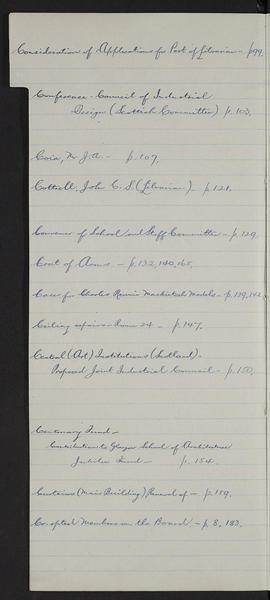 Consideration of Applications for Post of Librarian - p99.
Conference - Council of Industrial
Design (Scottish Committee) p. 103.
Coia, Mr J.A. - p. 107.
Cottiell, John C. S. (Librarian) p. 121.
Convener of School and Staff Committee - p. 129.
Coat of Arms - p. 132, 140, 165.
Cases for Charles Rennie Mackintosh Models - p. 139, 142.
Ceiling repairs - Room 24 - p. 147.
Central (Art) Institutions (Scotland) -
Proposed Joint Industrial Council - p. 150.
Centenary Fund -
Contribution to Glasgow School of Architecture
Jubilee Fund - p. 154.
Curtains (Main Building) Renewal of - p. 159.
Co-opted Members on the Board - p. 8, 183.